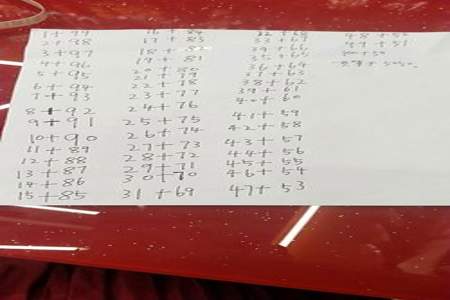 1+99
2+98
3+97
4+96
5+95
6+94
7+93
8+92
9+91
10+90
11+89
12+88
13+87
14+86
15+85
16+84
17+83
18+82
19+81
20+80
21+79
22+78
23+77
24+76
25+75
26+74
27+73
28+72
29+71
30+70
31+69
32+68
33+67
34+66
35+65
36+64
37+63
38+62
39+61
40+60
41+59
42+58
43+57
44+56
45+55
46+54
47+53
48+52
49+51